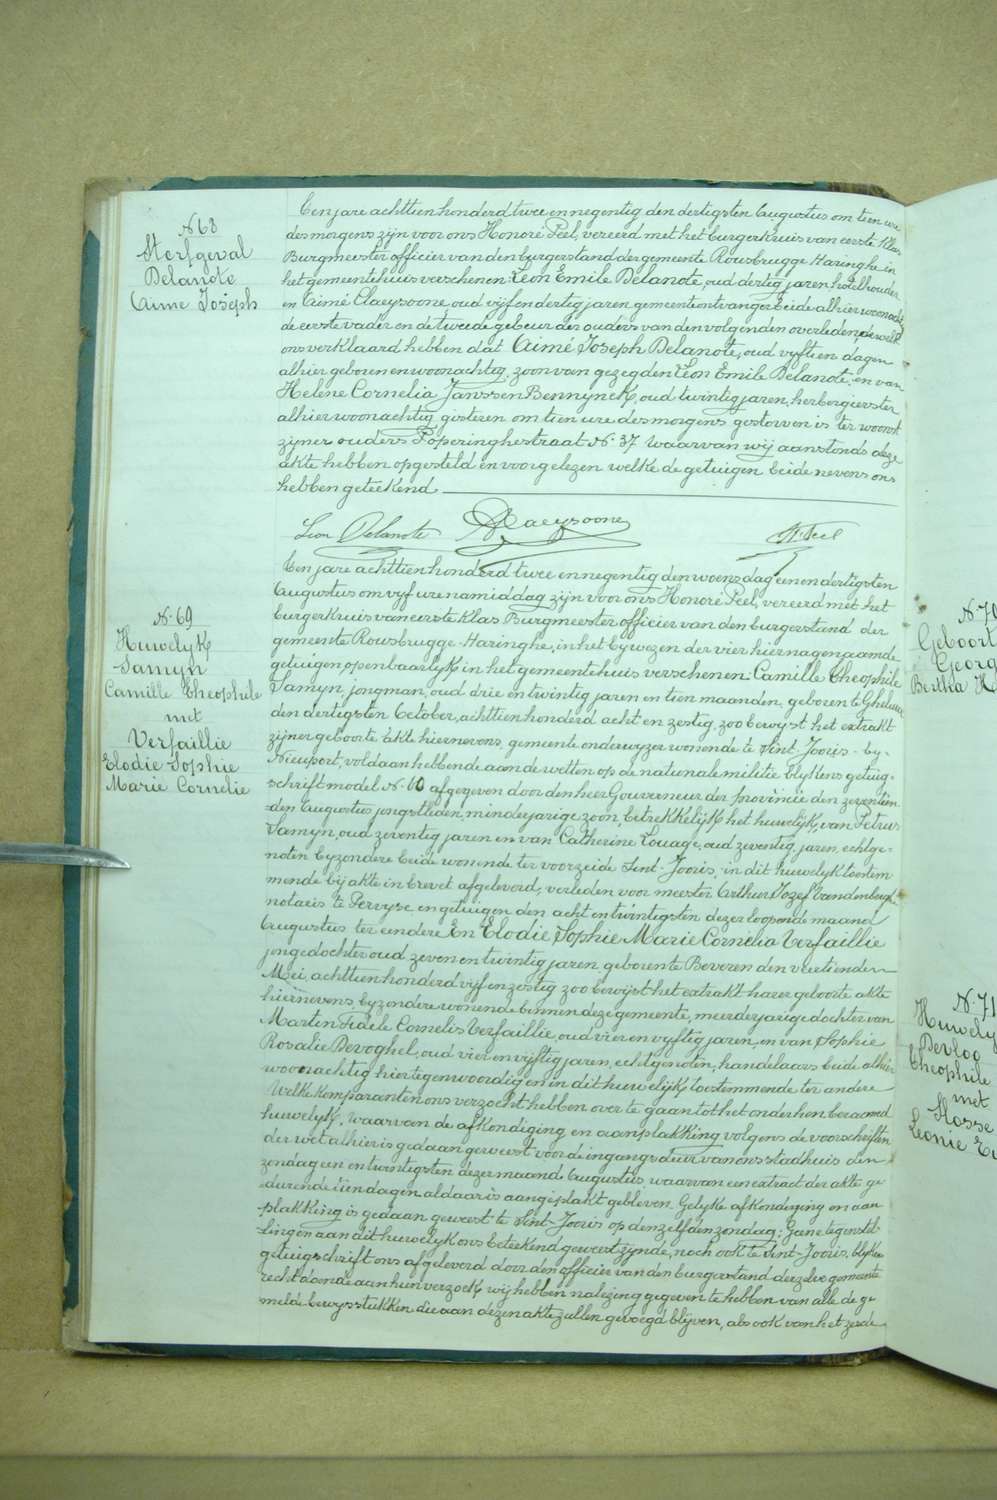 N 68
Sterfgeval
Delanote
Aimé Joseph
Ten jare achttien honderd twee en negentig den dertigsten Augustus om tien ure
des morgens zijn voor ons Honoré Peel, vereerd met het burgerkruis van eerste klas
Burgmeester officier van den burgerstand der gemeente Rousbrugge Haringhe in
het gemeentehuis verschenen Leon Emile Delanote, oud dertig jaren hotelhouder
en Aimé Claeysoone, oud vijf en dertig jaren gemeenteontvanger beide alhier woonachtig
de eerste vader en de tweede gebuur der ouders van den volgenden overleden, dewelke
ons verklaard hebben dat Aimé Joseph Delanote, oud vyftien dagen
alhier geboren en woonachtig, zoon van gezegden Leon Emile Delanote, en van
Helene Cornelia Janssen Bennynck, oud twintig jaren, herbergierster
alhier woonachtig, gisteren om tien ure des morgens gestorven is ter woonst
zijner ouders Poperinghestraat N. 37 waarvan wij aanstonds deze
akte hebben opgesteld en voorgelezen welke de getuigen beide nevens ons
hebben geteekend
Leon Delanote AClaeysoone H. Peel
N. 69
Huwelyk
Samyn
Camille Theophile
met
Verfaillie
Elodie Sophie
Marie Cornelie
Ten jare achttien honderd twee en negentig den woensdag een en dertigsten
Augustus om vyf ure namiddag zijn voor ons Honoré Peel, vereerd met het
burgerkruis van eerste klas Burgmeester officier van den burgerstand der
gemeente Rousbrugge-Haringhe, in het bywezen der vier hiernagenaamde
getuigen, openbaarlyk in het gemeentehuis verschenen Camille Theophile
Samyn, jongman, oud drie en twintig jaren en tien maanden, geboren te Gheluwe
den dertigsten October, achttien honderd acht en zestig, zoo bewyst het extrakt
zijner geboorte akte hiernevens, gemeente onderwyzer wonende te Sint-Joris-by-
Nieuport, voldaan hebbende aan de wetten op de nationale militie blykens getuig-
schrift model N. 60 afgegeven door den heer Gouverneur der provincie den zeventien-
den Augustus jongstleden, minderjarige zoon betrekkelijk het huwelijk, van Petrus
Samyn, oud zeventig jaren en van Catherine Louage, oud zeventig jaren, echtge-
noten byzondere beide wonende ter voorzeide Sint-Joris, in dit huwelyk toestem-
mende bij akte in brevet afgeleverd, verleden voor meester Arthur Jozef Vandenbergh
notaris te Pervyse en getuigen den acht en twintigsten dezer loopende maand
Augustus ter eendere En Elodie Sophie Marie Cornelia Verfaillie
jongedochter oud zeven en twintig jaren, geboren te Beveren den veertienden
Mei, achttien honderd vijf en zestig zoo bewijst het extrakt harer geboorte akte
hiernevens, byzondere wonende binnen deze gemeente, meerderjarige dochter van
Martin Fidele Cornelis Verfaillie, oud vier en vyftig jaren, en van Sophie
Rosalie Devoghel, oud vier en vijftig jaren, echtgenoten, handelaars beide alhier
woonachtig, hier tegenwoordig en in dit huwelijk toestemmende ter andere
Welke komparanten ons verzocht hebben over te gaan tot het onder hen beraamd
huwelyk, waarvan de afkondiging en aanplakking volgens de voorschriften
der wet alhier is gedaan geweest voor de ingangsdeur van ons stadhuis den
zondag een en twintigsten dezer maand Augustus, waarvan een extract der akte ge-
durende tien dagen aldaar is aangeplakt gebleven. Gelyke afkondiging en aan
plakking is gedaan geweest te Sint-Joris op denzelfden zondag; Gene tegenstel-
lingen aan dit huwelyk ons beteekend geweest zynde, noch ook te Sint-Joris, blykens
getuigschrift ons afgeleverd door den officier van den burgerstand derzelve gemeente
recht doende aan hun verzoek, wij hebben na lezing gegeven te hebben van alle de ge-
melde bewysstukken die aan dezen akte zullen gevoegd blijven, als ook van het zesde
N. 70
Geboort
Georg
Bertha H
N. 71
Huwely
Devloo
Theophile
met
Hosse
Leonie E